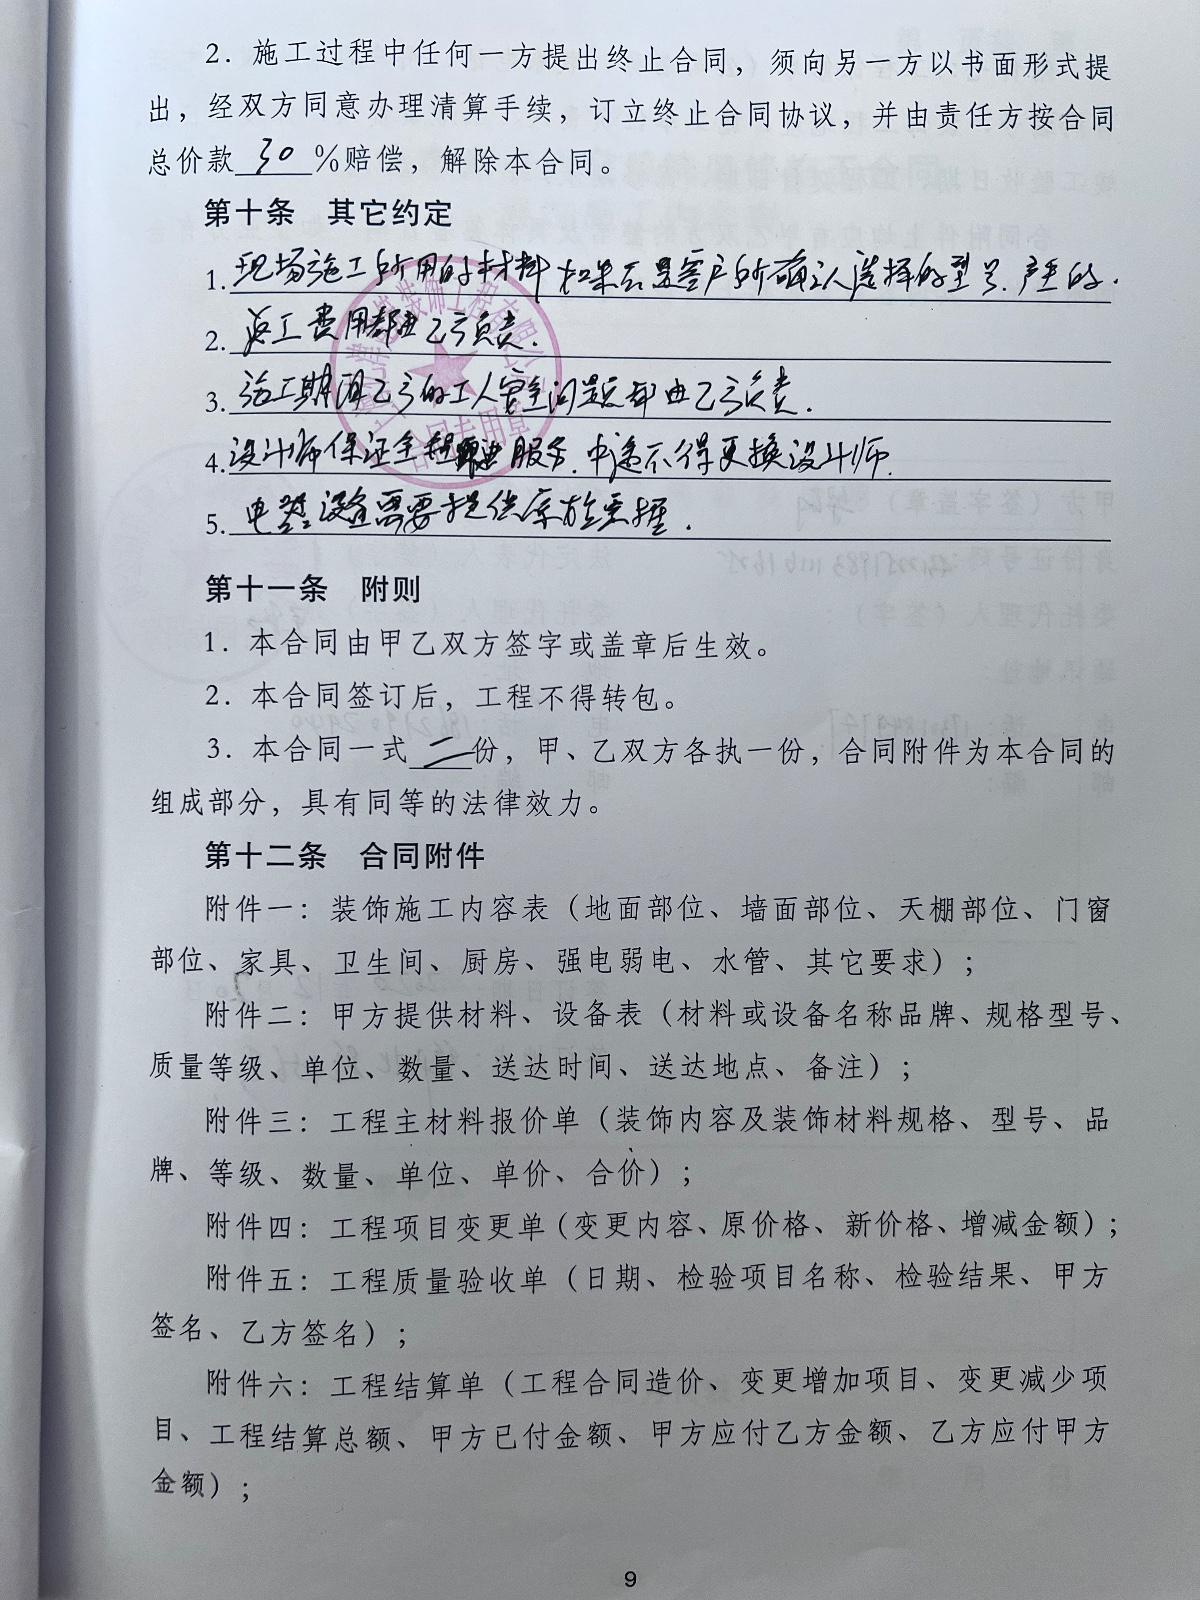 2. 施工过程中任何一方提出终止合同，须向另一方以书面形式提
出，经双方同意办理清算手续，订立终止合同协议，并由责任方按合同
总价款 30 %赔偿，解除本合同。
第十条 其它约定
1. 现场施工所用的材料如果不是客户所确认选择的型号.产生的.
2. 返工费用都由乙方负责.
3. 施工期间乙方的工人安全问题都由乙方负责.
4. 设计师保证全程跟进服务.中途不得更换设计师.
5. 电器设备需要提供
第十一条 附则
1. 本合同由甲乙双方签字或盖章后生效。
2. 本合同签订后，工程不得转包。
3. 本合同一式 二 份，甲、乙双方各执一份，合同附件为本合同的
组成部分，具有同等的法律效力。
第十二条 合同附件
附件一：装饰施工内容表（地面部位、墙面部位、天棚部位、门窗
部位、家具、卫生间、厨房、强电弱电、水管、其它要求）；
附件二：甲方提供材料、设备表（材料或设备名称品牌、规格型号、
质量等级、单位、数量、送达时间、送达地点、备注）；
附件三：工程主材料报价单（装饰内容及装饰材料规格、型号、品
牌、等级、数量、单位、单价、合价）；
附件四：工程项目变更单（变更内容、原价格、新价格、增减金额）；
附件五：工程质量验收单（日期、检验项目名称、检验结果、甲方
签名、乙方签名）；
附件六：工程结算单（工程合同造价、变更增加项目、变更减少项
目、工程结算总额、甲方已付金额、甲方应付乙方金额、乙方应付甲方
金额）；
9